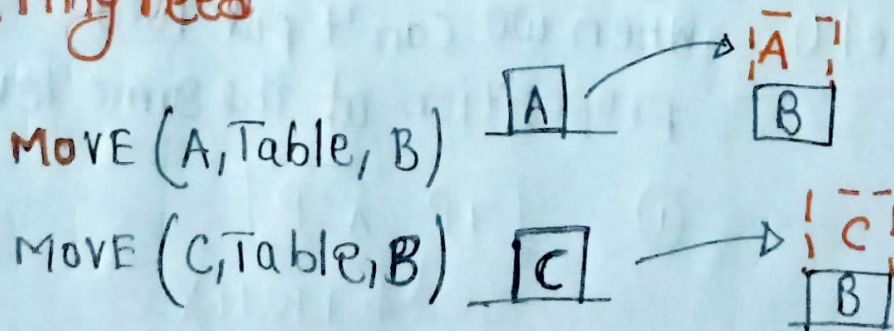 MOVE (A, Table, B) A A B
MOVE (C, Table, B) C C B